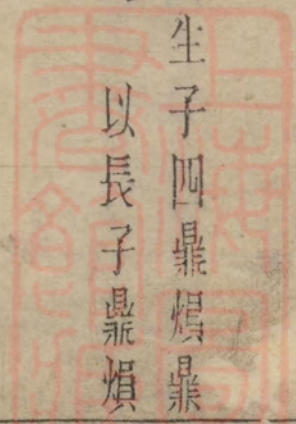 生子四鼎熉鼎
以長子鼎熉